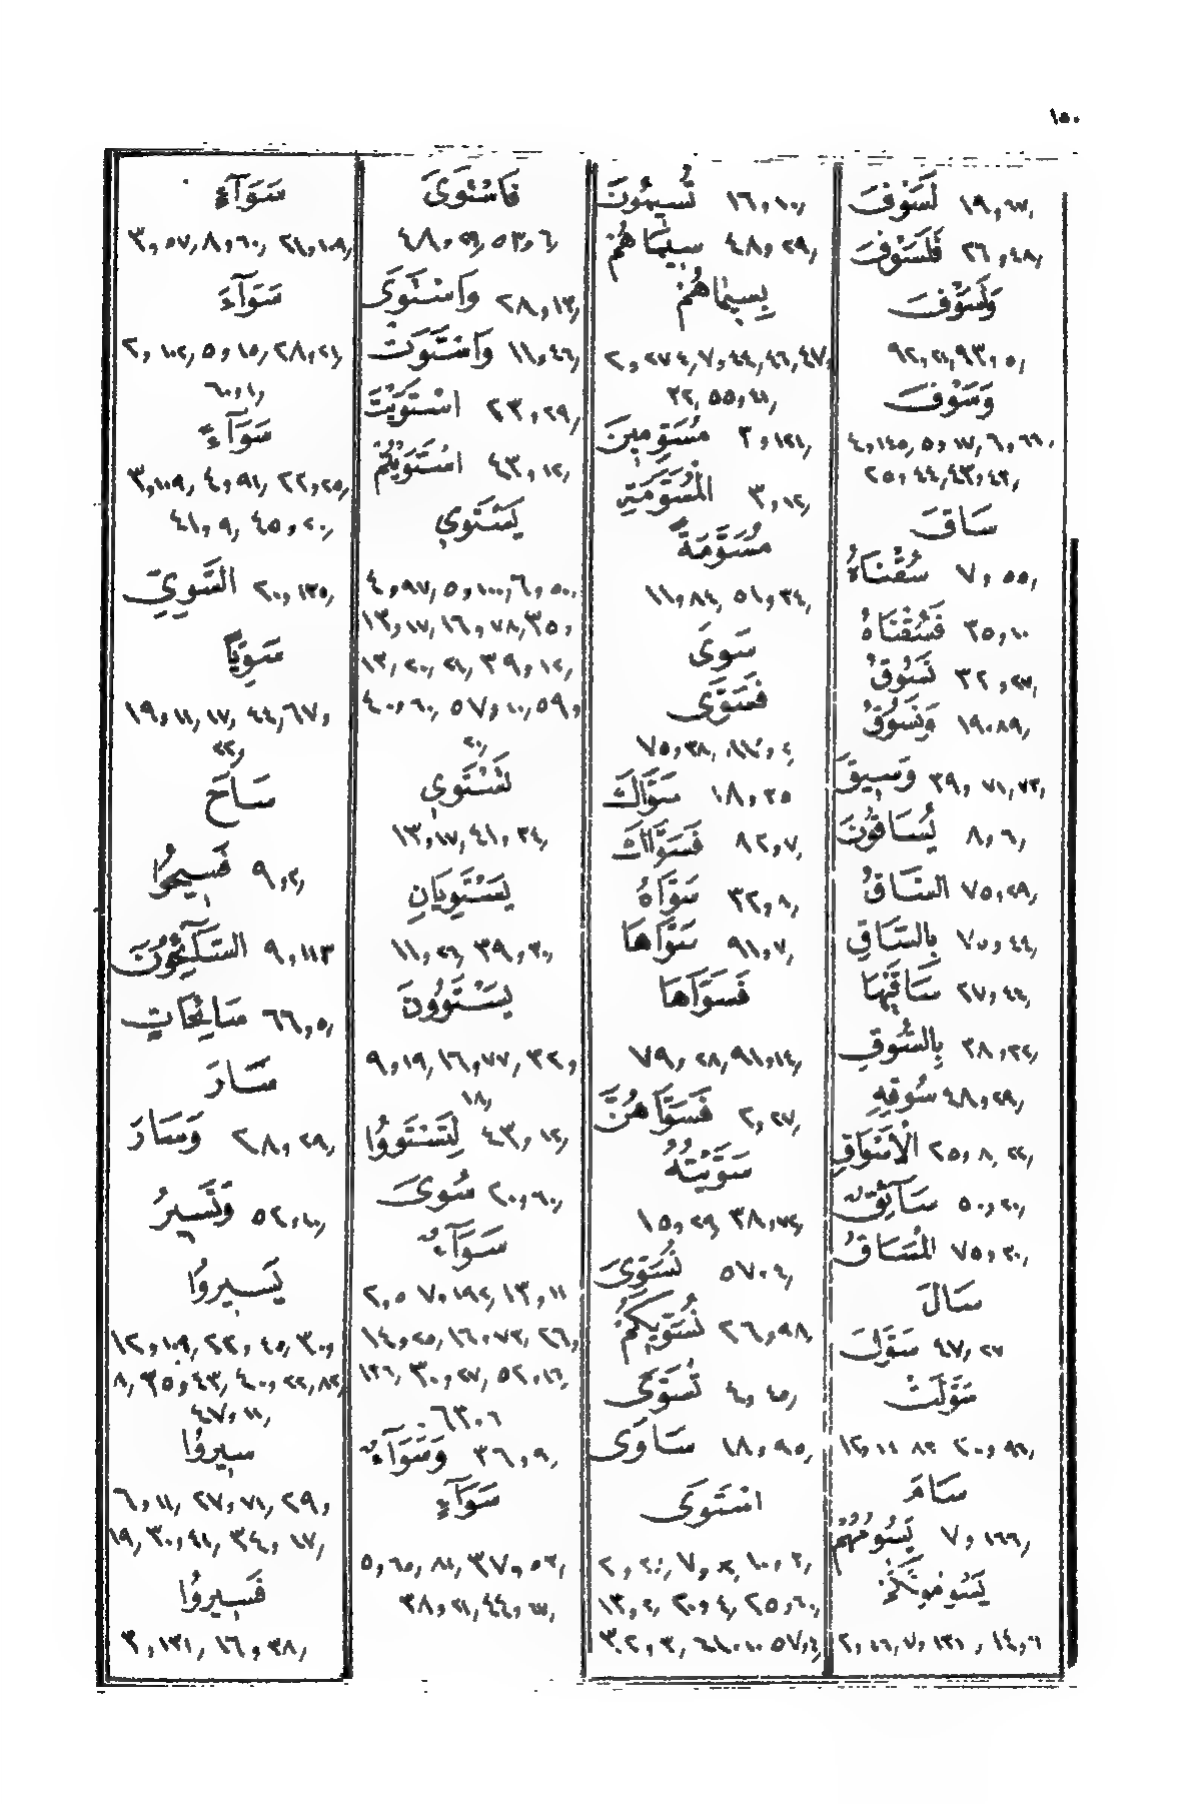 ١٥٠
لَسَوْفَ ١٩,٦٧,
فَلَسَوْفَ ٢٦,٤٨,
وَلَسَوْفَ
٩٢,٢١,٩٣,٥,
وَسَوْفَ
٤,١٤٥,٥,١٧,٦,٦٦,
٢٥,٤٤,٤٣,٤٣,
سَاقَ
سُقْنَاهُ ٧,٥٥,
فَسُقْنَاهُ ٣٥,١٠
نَسُوقُ ٣٢,٢٧,
وَنَسُوقُ ١٩,٨٩,
وَسِيقَ ٣٩,٧١,٧٣,
يُسَاقُونَ ٨,٦,
السَّاقُ ٧٥,٢٩,
بِالسَّاقِ ٧٥,٤٤,
سَاقَيْهَا ٢٧,٤٤,
بِالسُّوقِ ٣٨,٣٢,
سُوقِهِ ٤٨,٢٩,
الْأَسْوَاقِ ٢٥,٨,٢٢,
سَآئِقٌ ٥٠,٢٠,
الْمَسَاقُ ٧٥,٣٠,
سَالَ
سَوَّلَ ٤٧,٢٧
سَوَّلَتْ
١٢,١٤ ٨٣ ٢٠,٩٦,
سَامَ
يَسُومُهُمْ ٧,١٦٦,
يَسُومُونَكُمْ
٢,٤٦,٧,١٣١, ١٤,٦
تُسِيمُونَ ١٦,١٠,
سِيمَاهُمْ ٤٨,٢٩,
بِسِيمَاهُمْ
٢,٢٧٤,٧,٤٤,٤٦,٤٧,
٣٢,٥٥,٤١,
مُسَوِّمِينَ ٣,١٢١,
الْمُسَوَّمَةِ ٣,١٢,
مُسَوَّمَةً
١١,٨٤,٥١,٣٤,
سَوَى
فَسَوَّى
٧٥,٣٨,
سَوَّاكَ ١٨,٣٥
فَسَوَّاكَ ٨٢,٧,
سَوَّاهُ ٣٢,٨,
سَوَّاهَا ٩١,٧,
فَسَوَّاهَا
٧٩,٢٨,٩١,١٤,
فَسَوَّاهُنَّ ٢,٢٧,
سَوَّيْتُهُ
١٥,٢٩,٣٨,٧٢,
نُسَوِّىَ
نُسَوِّيكُمْ ٢٦,٩٨,
تُسَوَّى ٤,٤٥,
سَاوَى ١٨,٩٥,
اسْتَوَى
١٣,٢,٢٠,٤,٢٥,٦٠,
فَاسْتَوَى
٤٨,٢٩,٥٣,٦,
وَاسْتَوَى ٢٨,١٣,
وَاسْتَوَتْ ١١,٤٦,
اسْتَوَيْتَ ٢٣,٢٩,
اسْتَوَيْتُمْ ٤٣,١٢,
يَسْتَوِي
٤,٩٧,٥,١٠٠,٦,٥٠,
١٣,١٧,١٦,٧٨,٣٥,
١٢,٢٠,٢١,٣٩,١٢,
٤٠,٦٠,٥٧,١٠,٥٩,
٢٠,
تَسْتَوِي
١٣,١٧,٤١,٣٤,
يَسْتَوِيَانِ
١١,٢٦,٣٩,٣٠,
يَسْتَوُونَ
٩,١٩,١٦,٧٧,٣٢,
١٨,
لِتَسْتَوُوا ٤٣,١٢,
سُوىً ٢٠,٦٠,
سَوَآءٌ
٢,٥ ٧,١٩٢,١٣,١١
١٤,٢٥,١٦,٧٣,٢٦,
١٣٦,٣٠,٢٧,٥٢,١٦,
٦٣,٦
وَسَوَآءٌ ٣٦,٩,
سَوَآءِ
٥,٦٥,٨١,٣٧,٥٣,
٣٨,٢١,٤٤,١٧,
سَوَآءٍ
٣,٥٧,٨,٦٠,٢١,١٠٩,
سَوَآءَ
٢,١٠٢,٥,١٥,٢٨,٢١,
٦٠,١,
سَوَآءً
٣,١٠٩,٤,٩١,٢٢,٢٥,
٤١,٩,٤٥,٢٠,
السَّوِيِّ ٢٠,١٣٥,
سَوِيًّا
١٩,١١,١٧,٤٤,٦٧,
٢٢,
سَاحَ
فَسِيحُوا ٩,٢,
السَّآئِحُونَ ٩,١١٣
سَائِحَاتٍ ٦٦,٥,
سَارَ
وَسَارَ ٢٨,٢٩,
وَتَسِيرُ ٥٢,١٠,
يَسِيرُوا
١٢,١٠٩,٢٢,٤٥,٣٠,
٨,٣٥,٤٣,٤٠,٢٢,٨٢,
٤٧,١١,
سِيرُوا
٦,١١,٢٧,٧١,٢٩,
١٩,٣٠,٤١,٣٤,١٧,
فَسِيرُوا
٣,١٣١,١٦,٣٨,